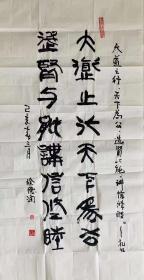 大道之行天下為公選賢與能講信修睦
大道之行天下為公
選賢與能講信修睦
己亥年三月